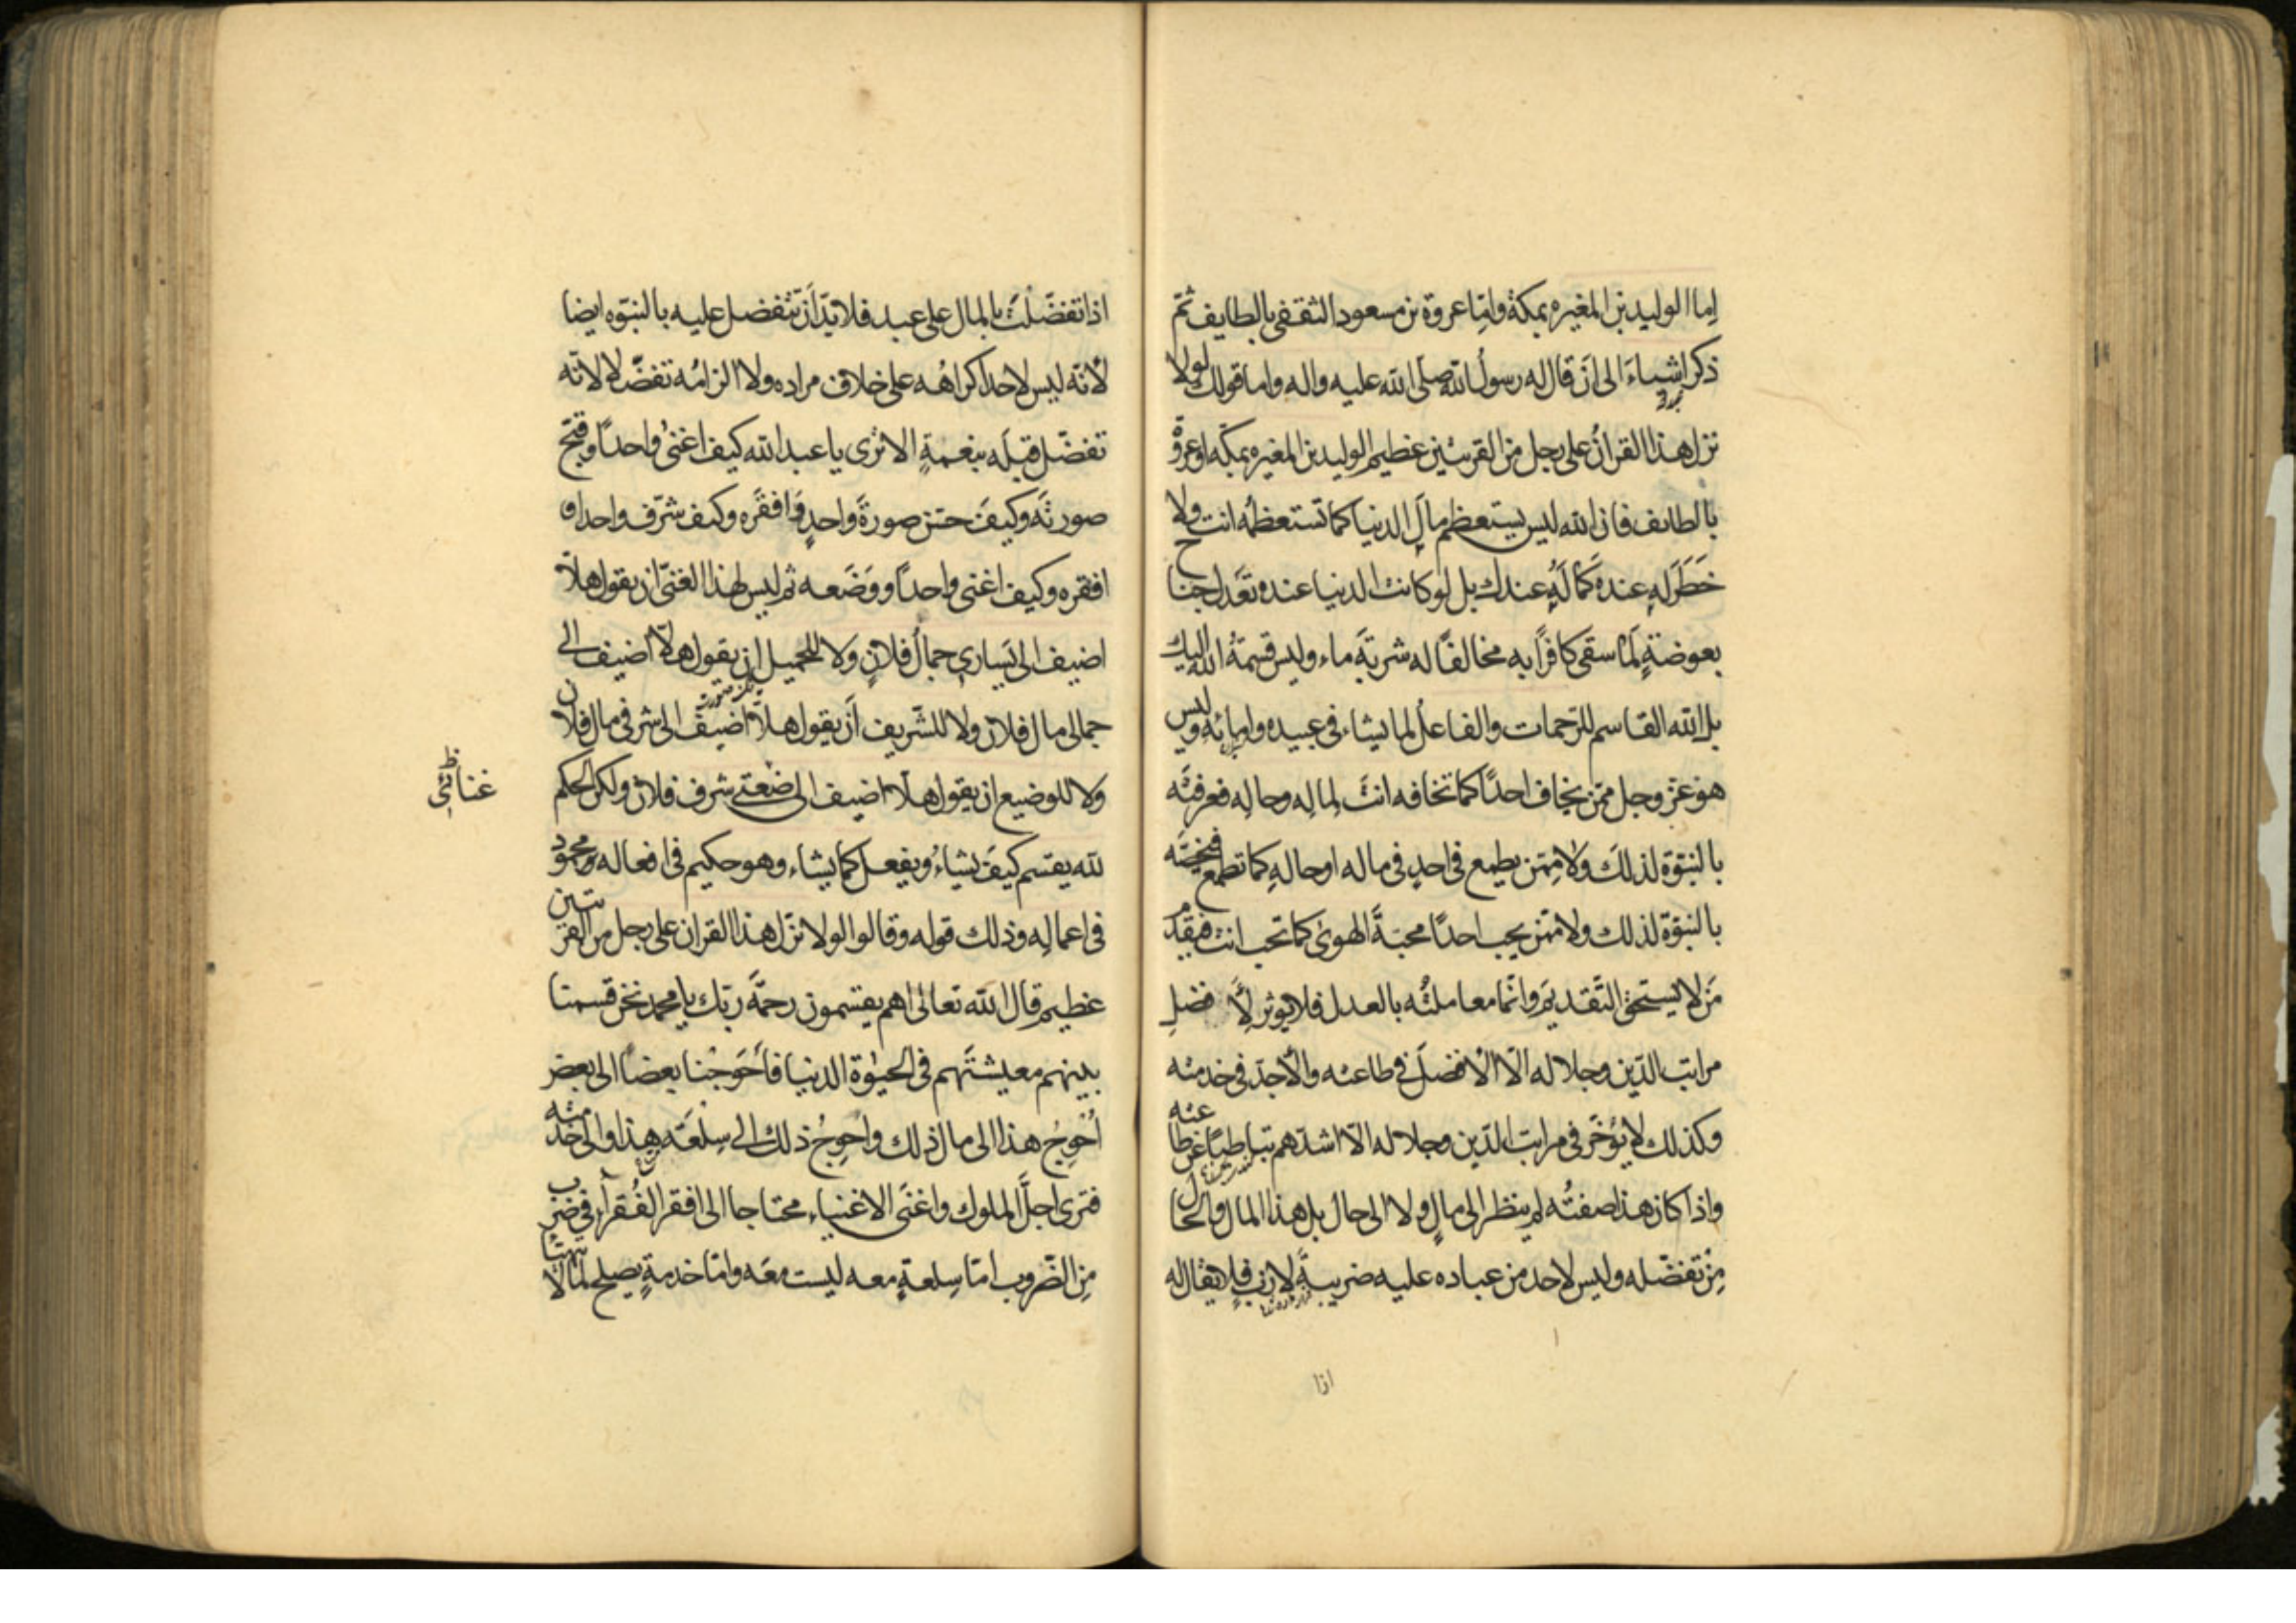 اما الوليد بن المغيره بمكة واما عروة بن مسعود الثقفى بالطايف ثم
ذكر اشياء الى ان قال له رسول الله صلى الله عليه واله واما قولك لولا
نزل هذا القران على رجل من القريتين عظيم الوليد بن المغيره بمكه او عروة
بالطايف فان الله ليس يستعظم مال الدنيا كما تستعظمه انت ولا
خطر له عنده كما له عندك بل لو كانت الدنيا عنده تعدل جناح
بعوضة لما سقى كافرا به مخالفا له شربة ماء وليس قسمة الله اليك
بل الله القاسم للرحمات والفاعل لما يشاء فى عبيده وامائه وليس
هو عز وجل ممن يخاف احدا كما تخافه انت لماله وحاله فعرفته
بالنبوة لذلك ولا ممن يطمع فى احد فى ماله او حاله كما تطمع فتخصه
بالنبوة لذلك ولا ممن يحب احدا محبة الهوى كما تحب انت فيقدم
من لا يستحق التقديم وانما معاملته بالعدل فلا يوثر لافضل
مراتب الدين وجلاله الا الافضل فى طاعته والاجد فى خدمته
وكذلك لا يؤخر فى مراتب الدين وجلاله الا اشدهم تباطئا عن طاعته
واذا كان هذا صفته لم ينظر الى مال ولا الى حال بل هذا المال والحال
من تفضله وليس لاحد من عباده عليه ضريبة لازب فلا يقال له
اذا
اذا تفضلت بالمال على عبد فلا بد ان تتفضل عليه بالنبوه ايضا
لانه ليس لاحد اكراهه على خلاف مراده ولا الزامه تفضلا لانه
تفضل قبله بنعمة الا ترى يا عبد الله كيف اغنى واحدا وقبح
صورته وكيف حسن صورة واحد وافقره وكيف شرف واحدا و
افقره وكيف اغنى واحدا ووضعه ثم ليس لهذا الغنى ان يقول هلا
اضيف الى يسارى جمال فلان ولا للجميل ان يقول هلا اضيف الى
جمالى مال فلان ولا للشريف ان يقول هلا اضيف الى شرفى مال فلان
ولا للوضيع ان يقول هلا اضيف الى ضعتى شرف فلان ولكن الحكم
لله يقسم كيف يشاء ويفعل كما يشاء وهو حكيم فى افعاله محمود
فى اعماله وذلك قوله وقالوا لولا نزل هذا القران على رجل من القريتين
عظيم قال الله تعالى اهم يقسمون رحمة ربك يا محمد نحن قسمنا
بينهم معيشتهم فى الحيوة الدنيا فاحوجنا بعضا الى بعض
احوج هذا الى مال ذلك واحوج ذلك الى سلعة هذا والى خدمته
فترى اجل الملوك واغنى الاغنياء محتاجا الى افقر الفقرآء فى ضرب
من الضروب اما سلعة معه ليست معه واما خدمة يصلح لما لا يتهيا